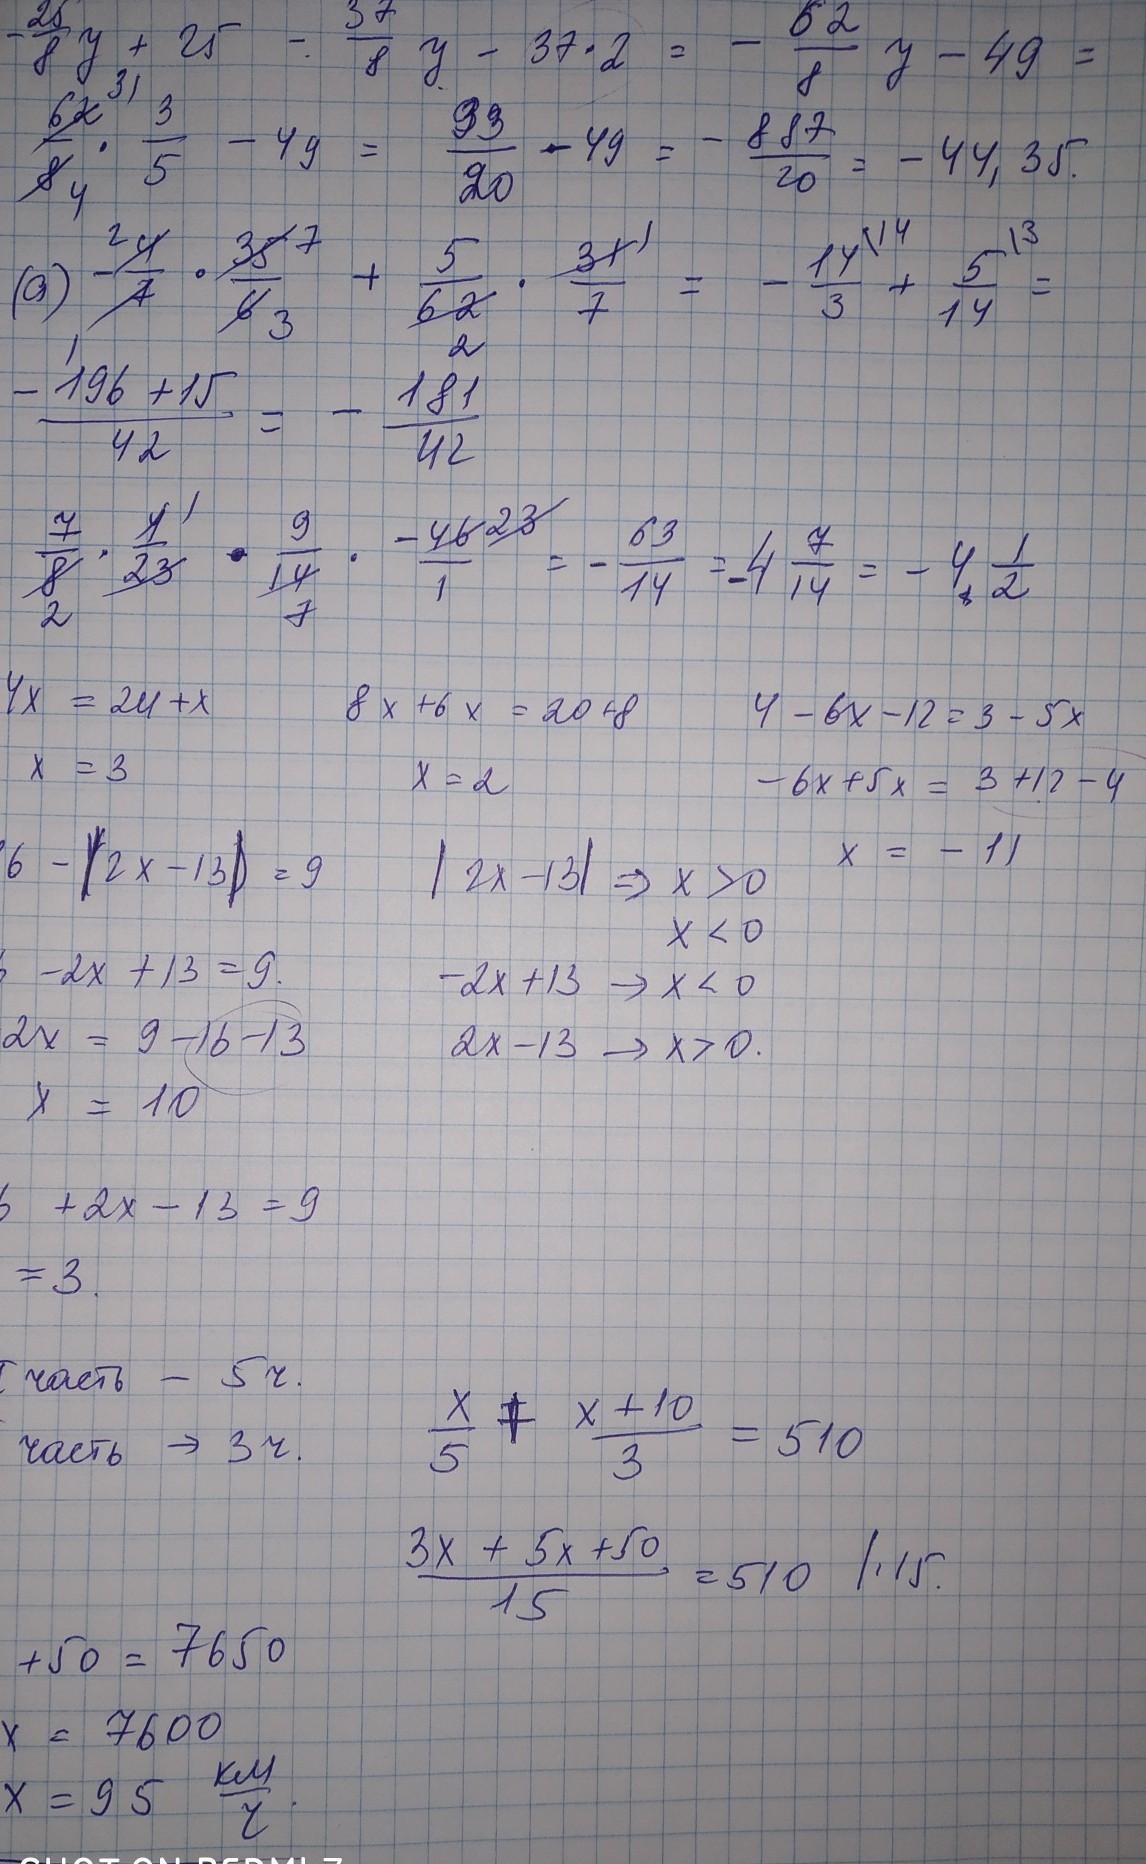 -25/8 y + 25 - 37/8 y - 37·2 = - 62/8 y - 49 =
62/8 31 4 · 3/5 - 49 = 93/20 - 49 = - 887/20 = - 44,35.
(a) - 4/7 2 1 · 35/6 7 3 + 5/62 2 · 31/7 1 = - 14/3 \14 + 5/14 \3 =
- 196 + 15 / 42 = - 181/42
7/8 2 · 4/23 1 · 9/14 7 · -46/1 23 = - 63/14 = -4 7/14 = - 4 1/2
4x = 24+x 8x+6x = 20+8 4-6x-12=3-5x
x = 3 x = 2 -6x+5x = 3+12-4
x = -11
6 - |2x-13| = 9 |2x-13| => x > 0
x < 0
-2x + 13 = 9. -2x+13 → x < 0
2x = 9-16-13 2x-13 → x > 0.
x = 10
+2x - 13 = 9
= 3.
часть - 5ч.
часть → 3ч. x/5 + x+10/3 = 510
3x + 5x + 50 / 15 = 510 /·15.
+50 = 7650
x = 7600
x = 95 км/ч.
SHOT ON REDMI 7